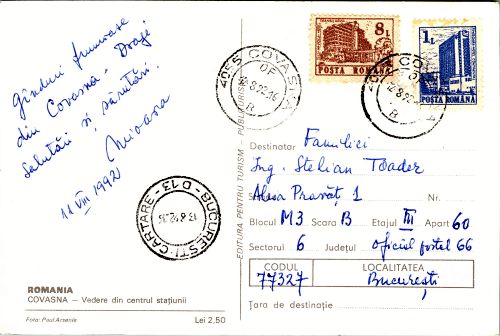 Gânduri frumoase
din Covasna. Dragi
salutări și sărutări.
Mioara
11 VIII 1992
ROMANIA
COVASNA – Vedere din centrul stațiunii
Foto: Paul Arsenie
Lei 2,50
EDITURA PENTRU TURISM - PUBLITURISM
8 L
POSTA ROMÂNA
1 L
POSTA ROMÂNA
4055 COVASNA
OF
12.8.92.16
B
BUCURESTI-CARTARE-D13
13.8.92
Destinatar Familiei
Ing. Stelian Toader
Aleea Pravăț 1 Nr.
Blocul M3 Scara B Etajul III Apart 60
Sectorul 6 Județul oficiul poștal 66
CODUL LOCALITATEA
77327 București
Țara de destinație